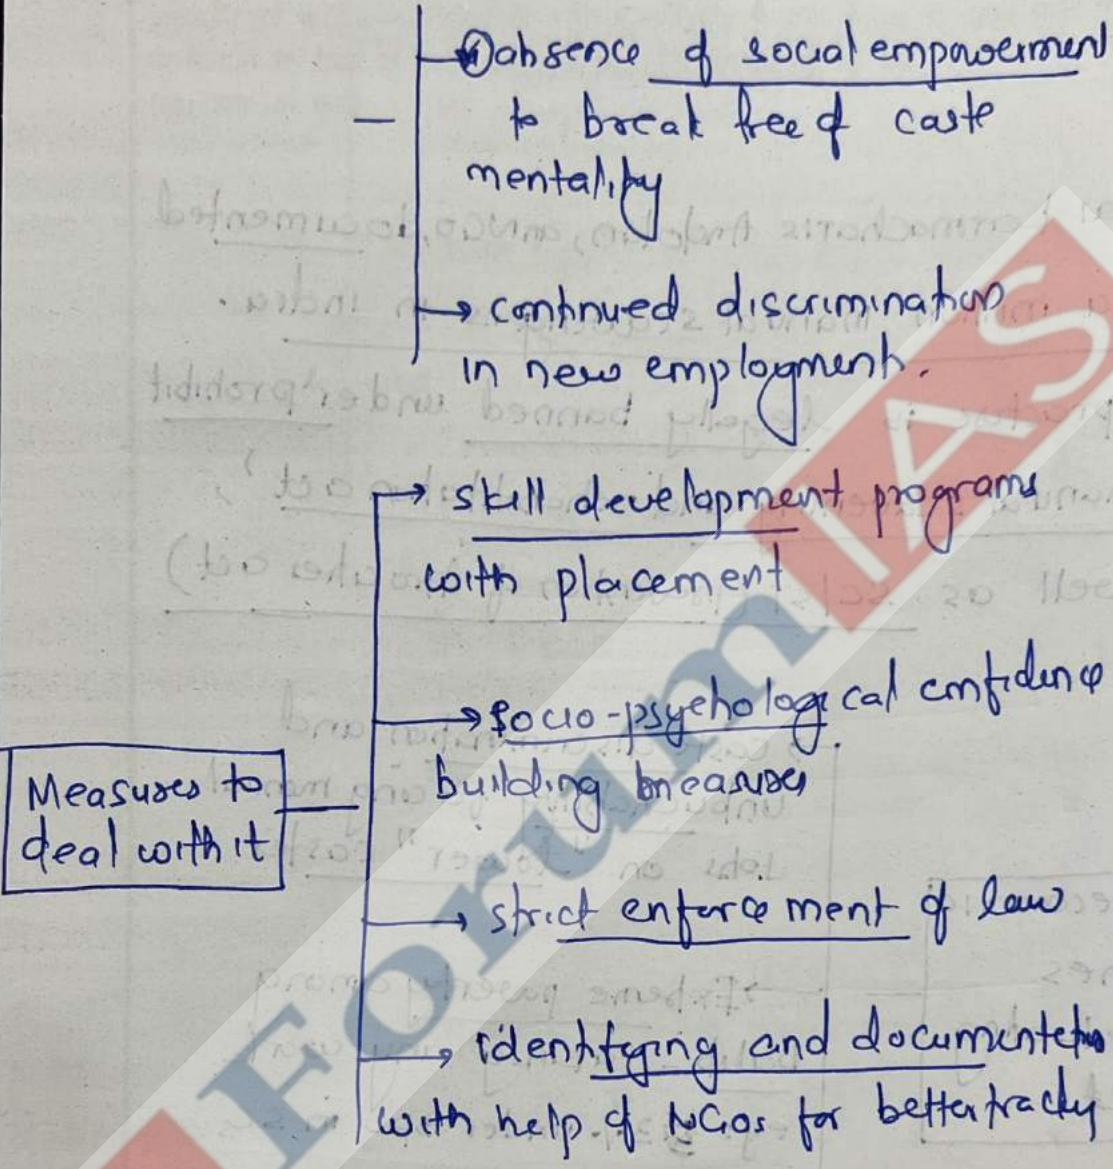 absence of social empowerment
to break free of caste
mentality
→ continued discrimination
in new employment.
→ skill development programs
with placement
→ socio-psychological confidence
building measures
Measures to
deal with it
→ strict enforcement of law
→ identifying and documentation
with help of NGOs for better
Forum IAS